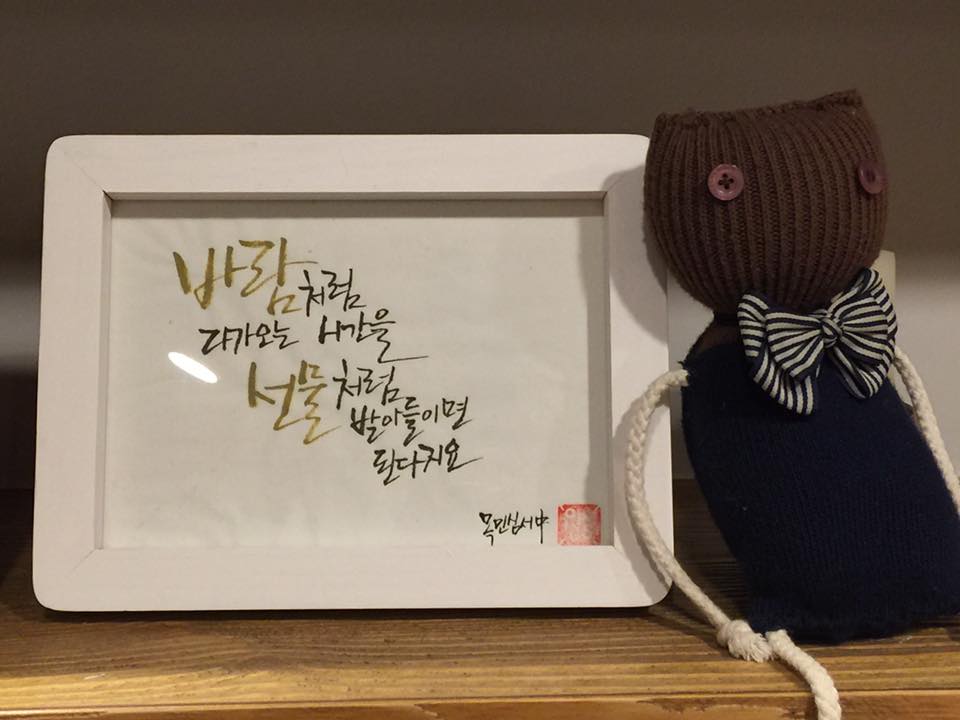 바람처럼
다가오는 시간을
선물처럼
받아들이면
된다지요
목민심서中